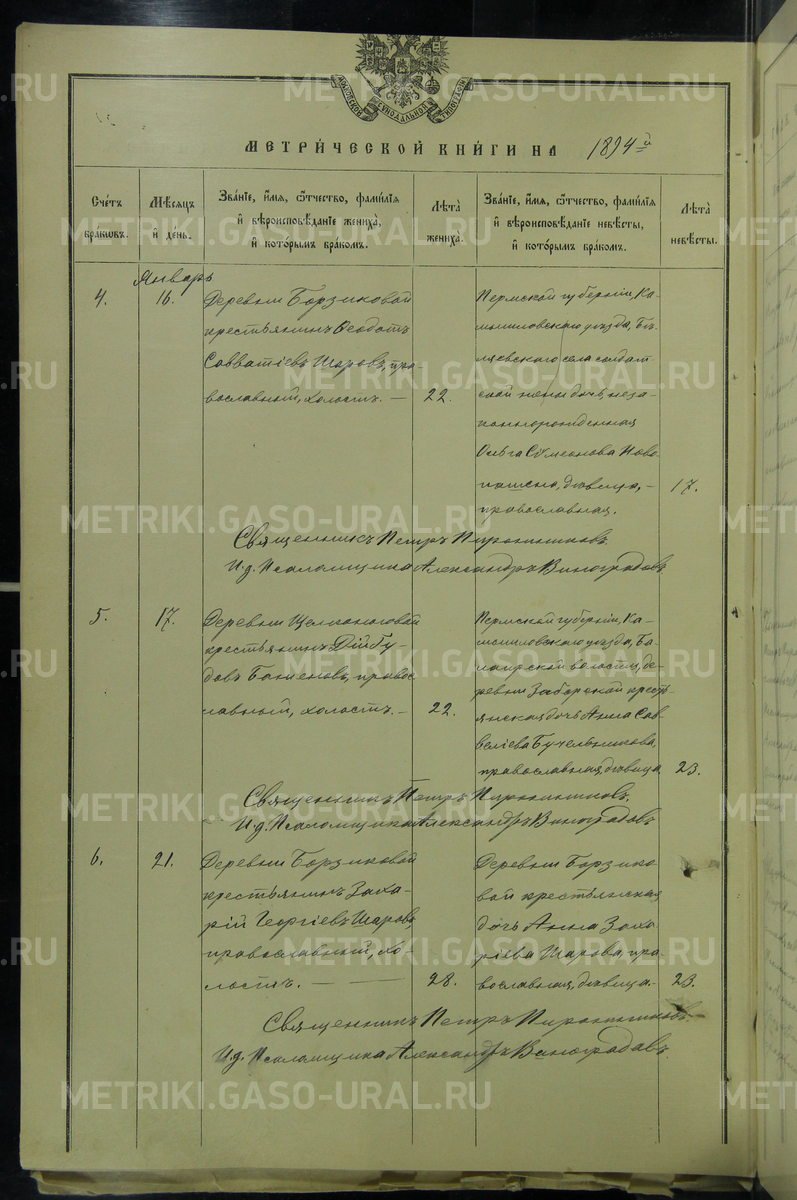 МЕТРИ́ЧЕСКОЙ КНИ́ГИ НА 1894й
Сче́тъ бра́кωвъ.
Мѣ́сяцъ и҆ де́нь.
Зва́нїе, и҆́мя, ѻ҆́тчество, фами́лїя и҆ вѣроисповѣ́данїе жениха̀, и҆ кото́рымъ бра́комъ.
Лѣ́та жениха̀.
Зва́нїе, и҆́мя, ѻ҆́тчество, фами́лїя и҆ вѣроисповѣ́данїе невѣ́сты, и҆ кото́рымъ бра́комъ.
Лѣ́та невѣ́сты.
Январь
4.
16.
Деревни Борзиковой
крестьянинъ Ѳеодотъ
Савватіевъ Шаровъ, пра-
вославный, холостъ. —
22.
Пермской губерніи, Ка-
мышловскаго уѣзда,
села солдат
ской жены дочь, неза
коннорожденная
Ольга Сѵмеонова Ново
пашена, дѣвица, —
православная.
17.
Священникъ Петръ
И.д. Псаломщика Александръ Виноградовъ
5.
17.
Деревни
крестьянинъ
православный, холостъ. —
22.
Пермской губерніи, Ка-
мышловскаго уѣзда,
волости, де-
ревни Заборской кресть
янская дочь Анна Сав-
веліева
православная, дѣвица.
23.
Священникъ Петръ
И.д. Псаломщика Александръ Виноградовъ
6.
21.
Деревни Борзиковой
крестьянинъ Заха-
рій Георгіевъ Шаровъ,
православный, хо-
лостъ. — —
28.
Деревни Борзико-
вой крестьянская
дочь Анна Заха
ріева Шарова, пра-
вославная, дѣвица. —
23.
Священникъ Петръ
И.д. Псаломщика Александръ Виноградовъ.
METRIKI.GASO-URAL.RU